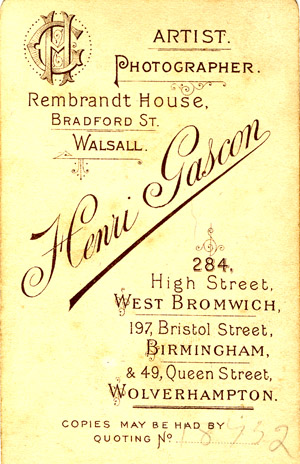 ARTIST.
PHOTOGRAPHER.
Rembrandt House,
BRADFORD ST.
WALSALL.
Henri Gascon
284,
High Street,
WEST BROMWICH,
197, Bristol Street,
BIRMINGHAM,
& 49, Queen Street,
WOLVERHAMPTON.
COPIES MAY BE HAD BY
QUOTING No